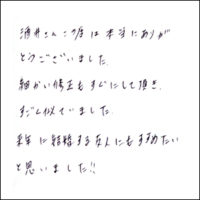 酒井さんこの度は本当にありが
とうございました。
細かい修正もすぐにして頂き、
すごく似ていました。
来年に結婚する友人にもすすめたい
と思いました!!